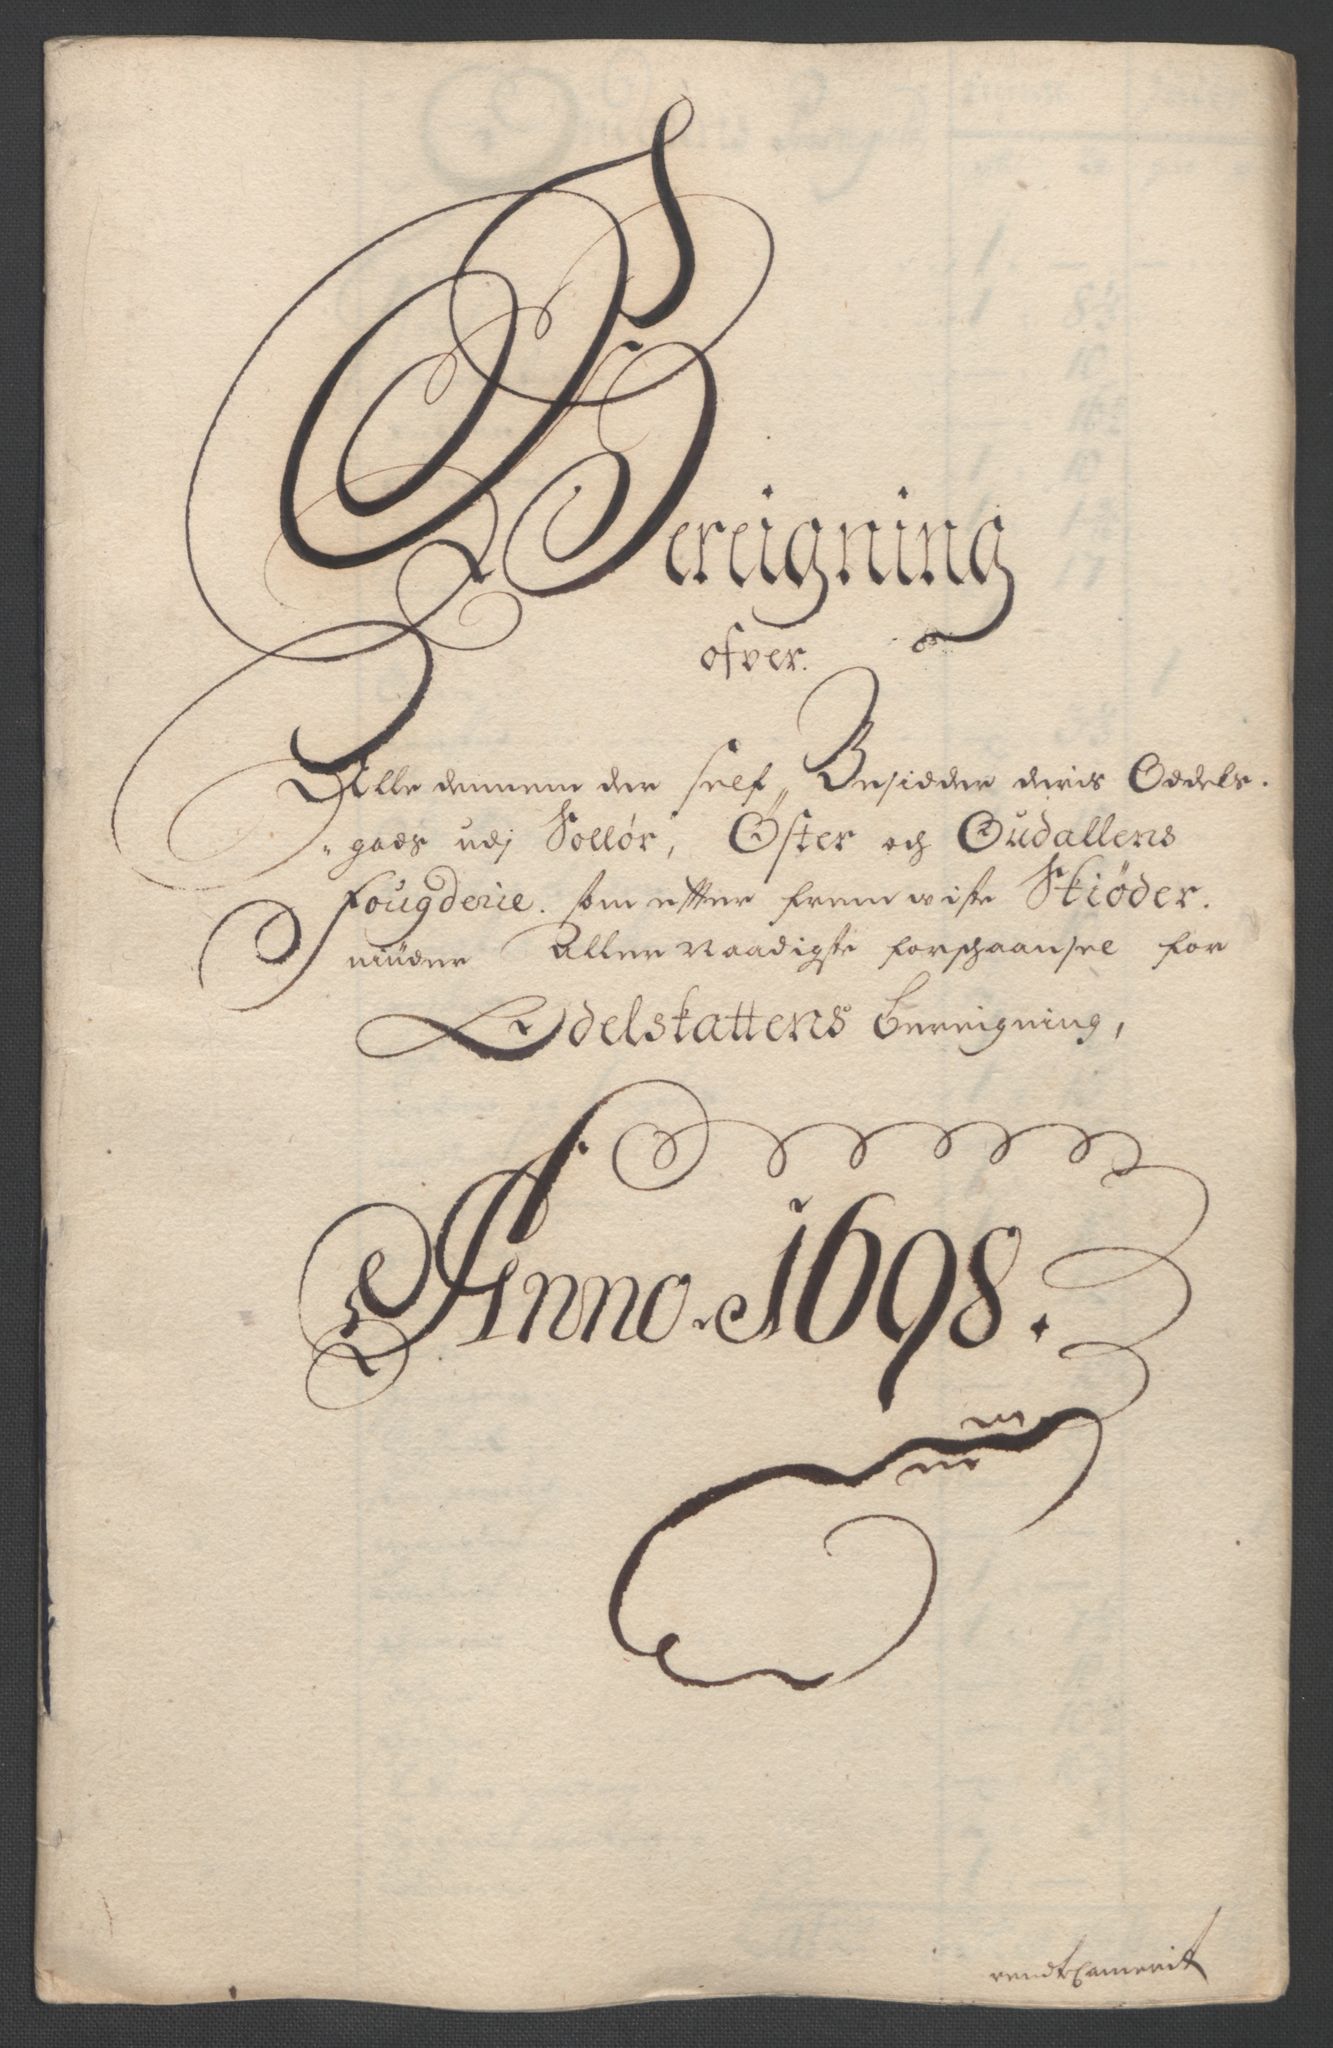 Bereigning
ofver.
Alle dennem der self Besidder deris Oddels-
gods udj Sollør, Øster och Oudallens
Fougderie. som etter fremviste Skiøder.
niuder Aller Naadigste forschaansel for
Odelskattens bereigning,
Anno. 1698.
rendtCamerit